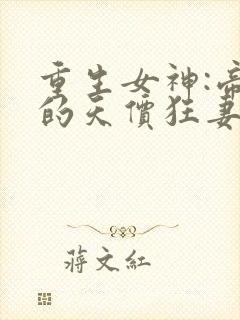 重生女神:帝
的天價狂妻
蔣文紅